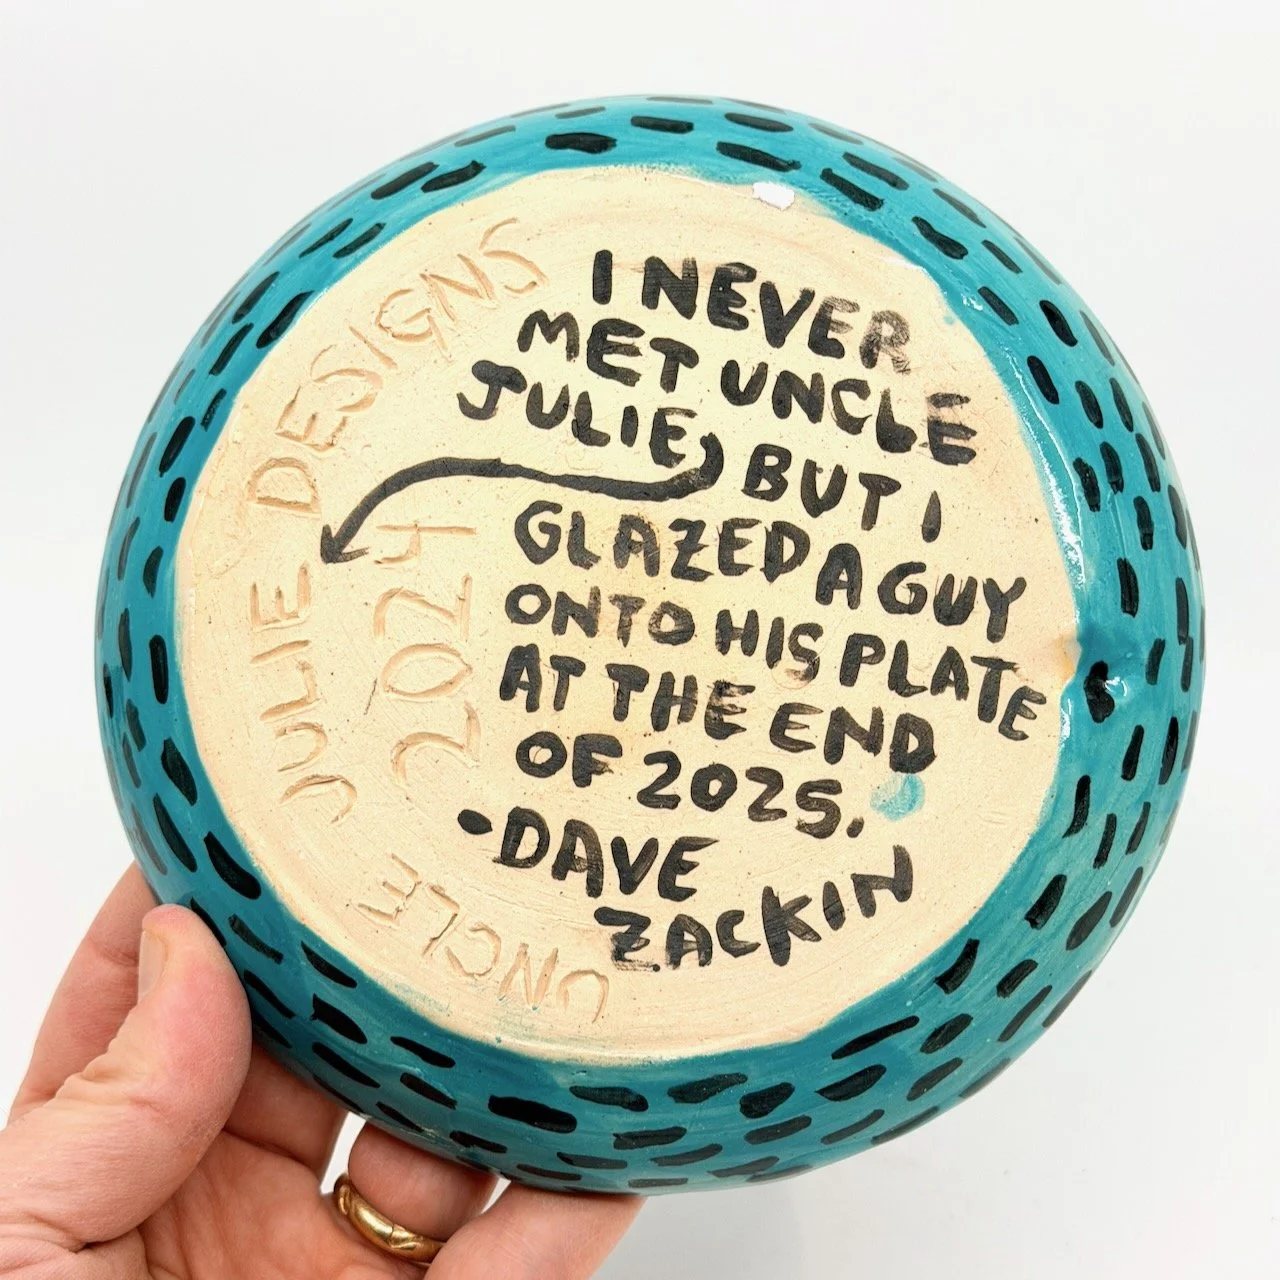 I NEVER
MET UNCLE
JULIE, BUT I
GLAZED A GUY
ONTO HIS PLATE
AT THE END
OF 2025.
-DAVE
ZACKIN
UNCLE JULIE DESIGNS
2024